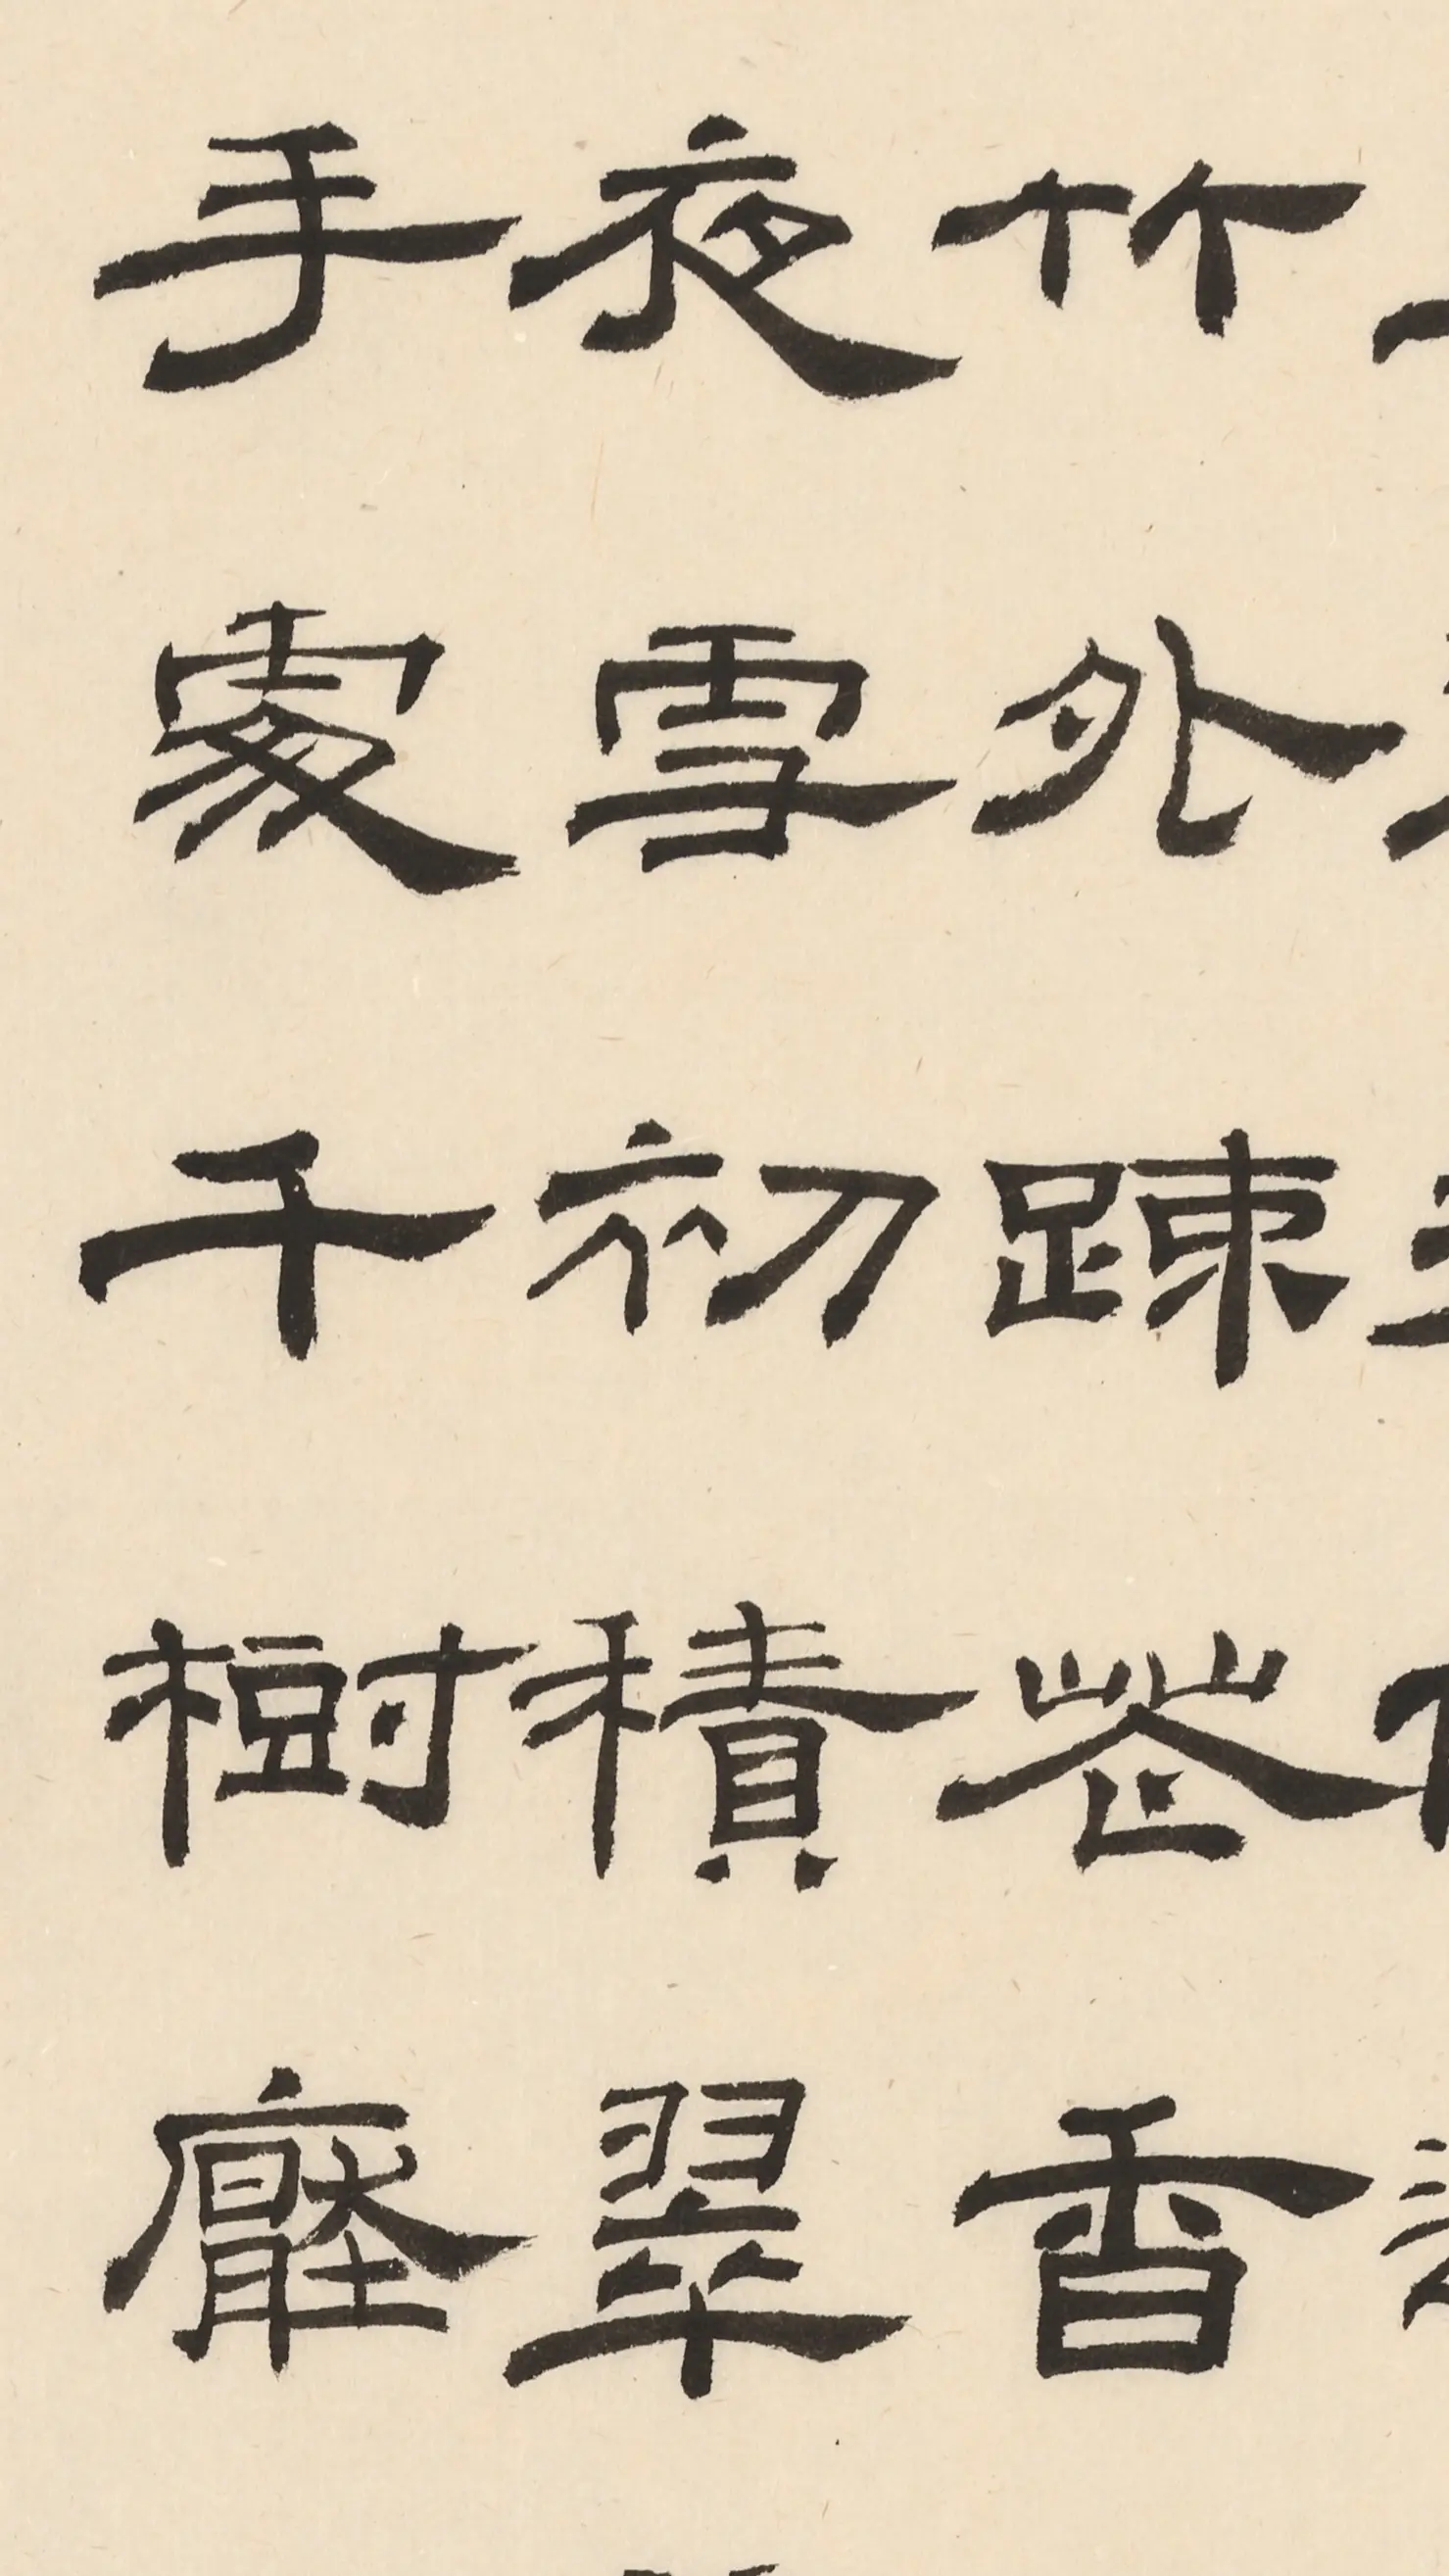 竹外疎花香
夜雪初積翠
手處千樹壓